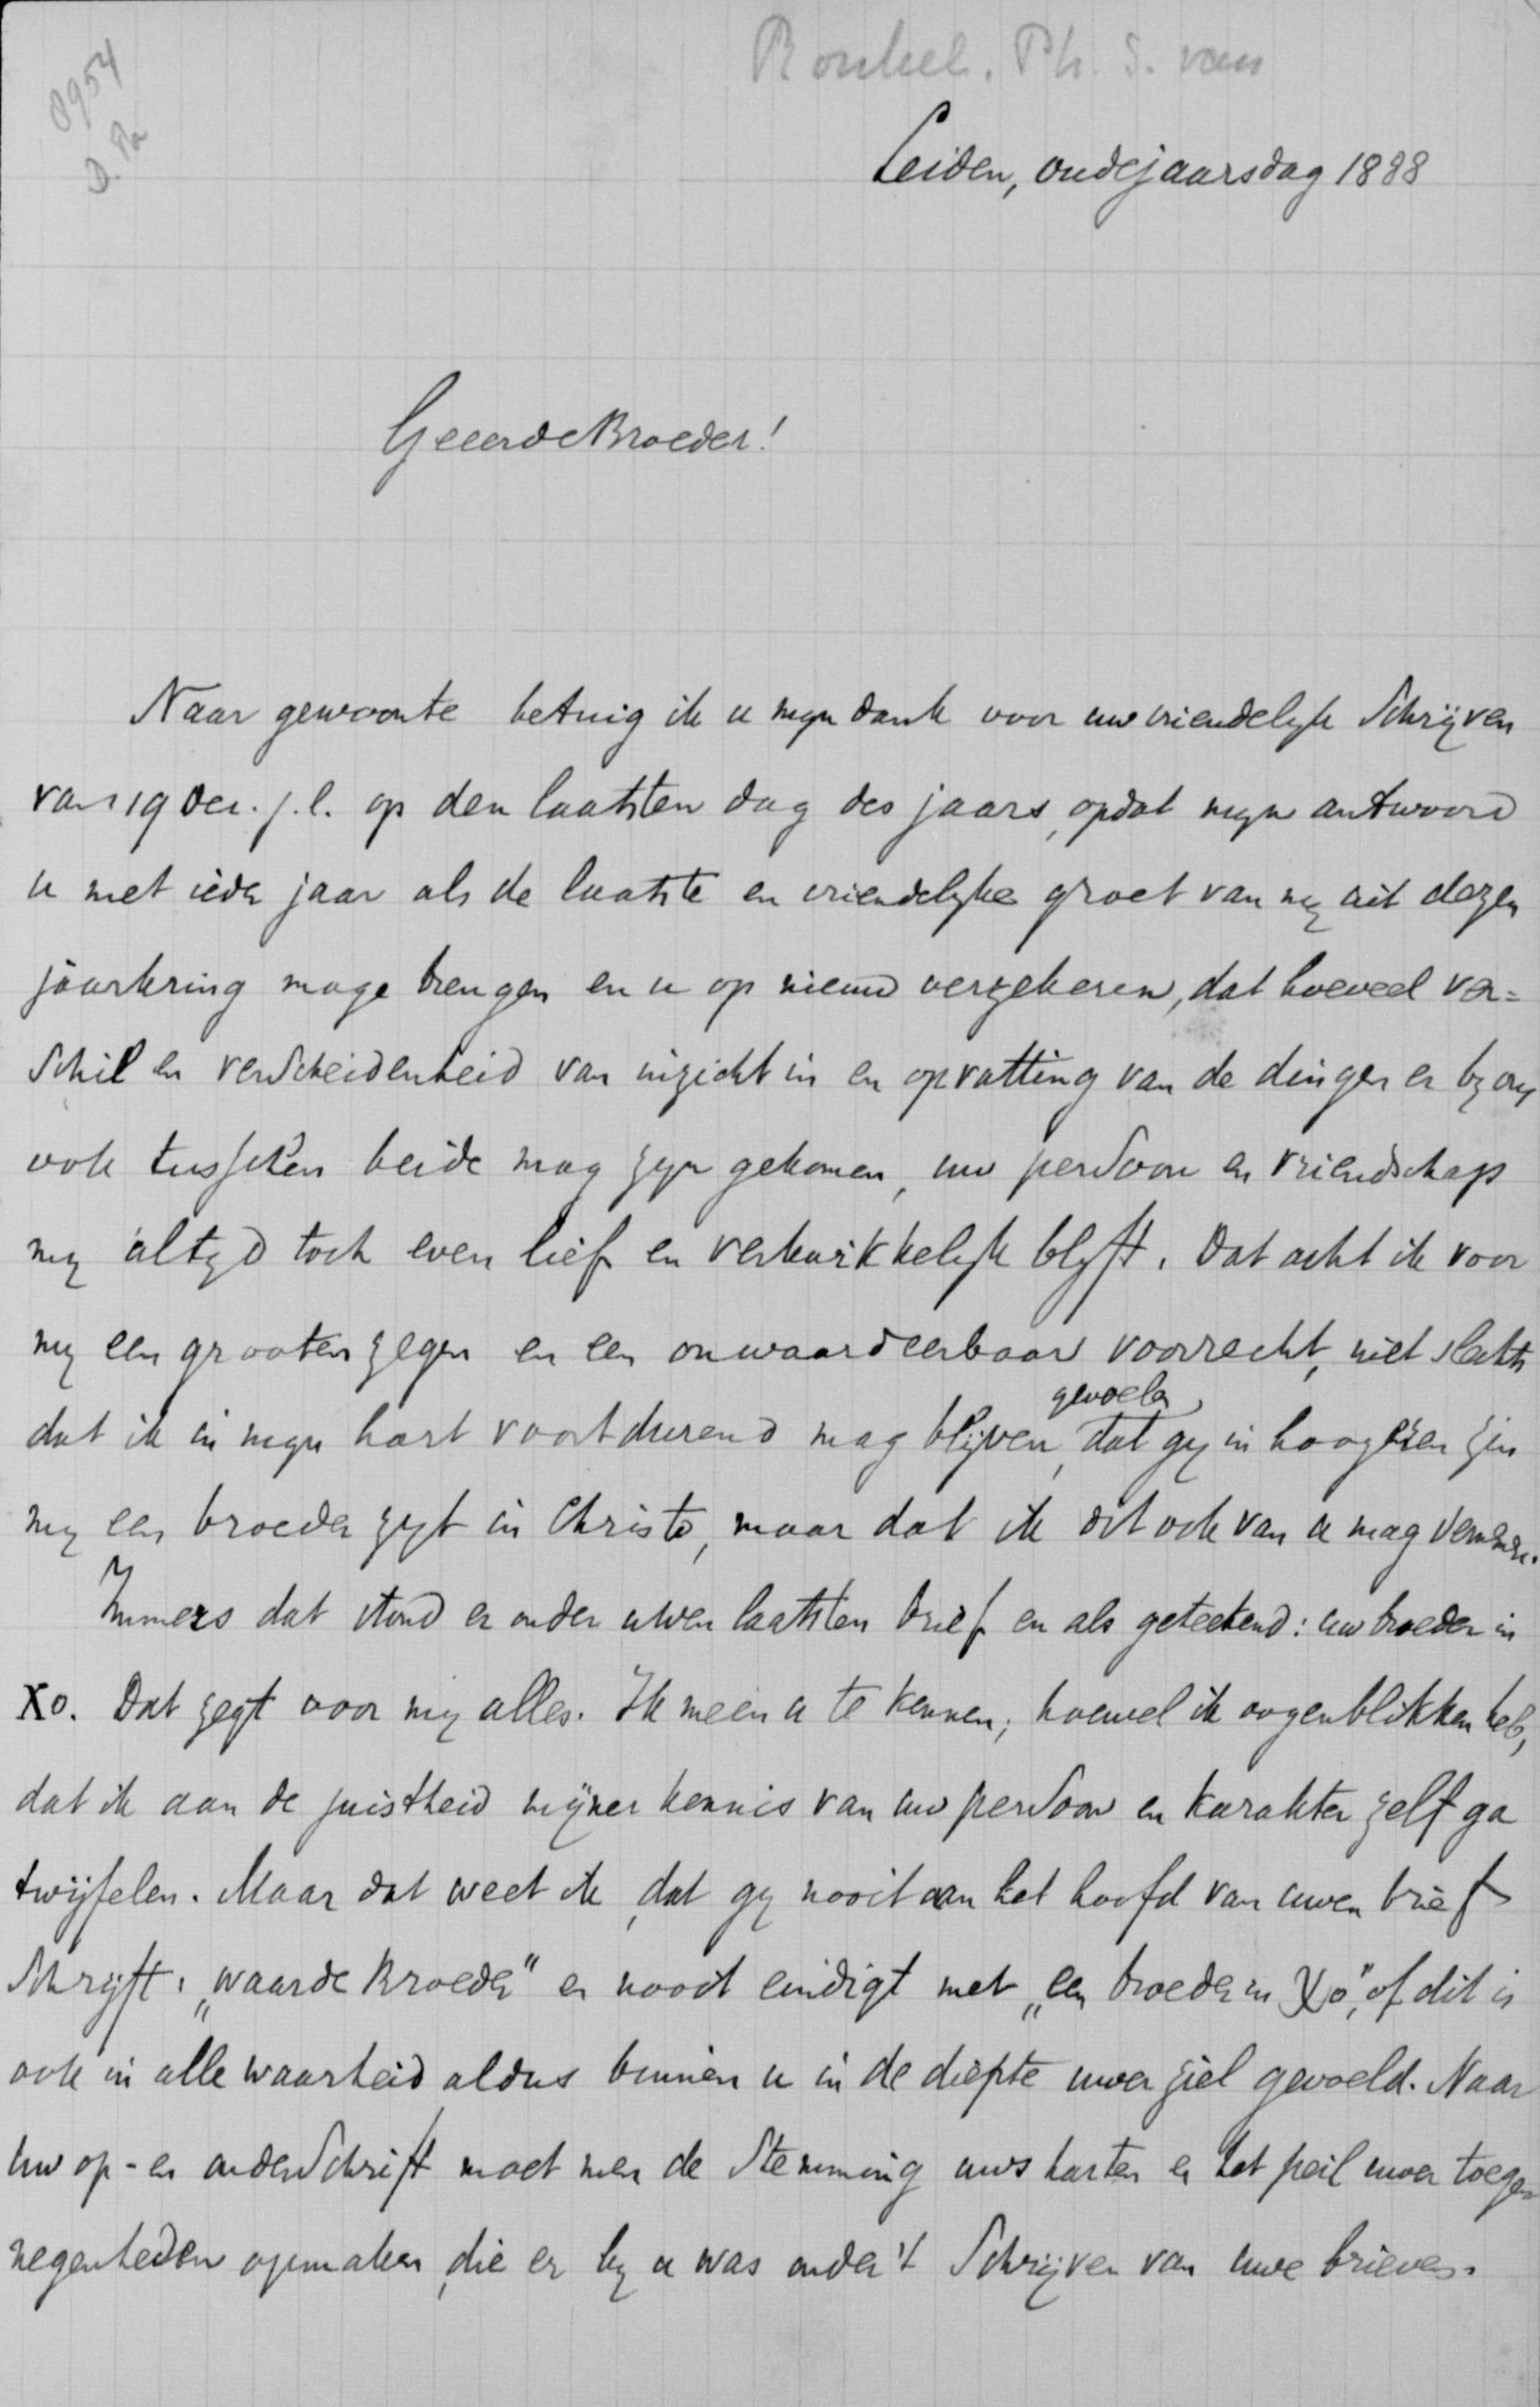 Ronkel. Ph. S. van
0954
D. Pa
Leiden, oudejaarsdag 1888
Geeerde Broeder!
Naar gewoonte betuig ik u mijn dank voor uw vriendelijk schrijven
van 19 Dec. j.l. op den laatsten dag des jaars, opdat mijn antwoord
u met ieder jaar als de laatste en vriendelijke groet van mij uit dezen
jaarkring moge brengen en u op nieuw verzekeren, dat hoeveel ver=
schil en verscheidenheid van inzicht in en opvatting van de dingen er bij ons
ook tusschen beide mag zijn gekomen, uw persoon en vriendschap
mij altijd toch even lief en verkwikkelijk blijft. Dat acht ik voor
mij een grooten zegen en een onwaardeerbaar voorrecht, niet slechts
dat ik in mijn hart voortdurend mag blijven gevoelen, dat gij in hoogeren zin
mij een broeder zijt in Christo, maar dat ik dit ook van u mag vernemen.
Immers dat stond er onder uwen laatsten brief en als geteekend: uw broeder in
Xo. Dat zegt voor mij alles. Ik meen u te kennen, hoewel ik oogenblikken heb,
dat ik aan de juistheid mijner kennis van uw persoon en karakter zelf ga
twijfelen. Maar dat weet ik, dat gij nooit aan het hoofd van uwen brief
schrijft: „waarde Broeder" en nooit eindigt met „een broeder in Xo", of dit is
ook in alle waarheid aldus binnen u in de diepte uwer ziel gevoeld. Naar
uw op- en onderschrift moet men de stemming uws harten en het peil uwer toege-
negenheden opmaken, die er bij u was onder 't schrijven van uwe brieven.